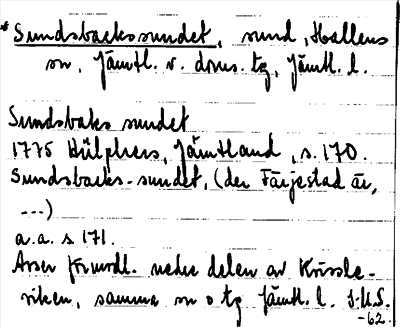 *Sundsbackssundet, sund, Hallens
sn, Jämtl. v. doms. tg, Jämtl. l.
Sundsbaks sundet
1775 Hülphers, Jämtland, s. 170.
Sundsbacks-sundet, (der Färjestad är,
---)
a.a. s 171.
Avser förmodl. nedre delen av
viken, samma sn o tg Jämtl. l.
-62.